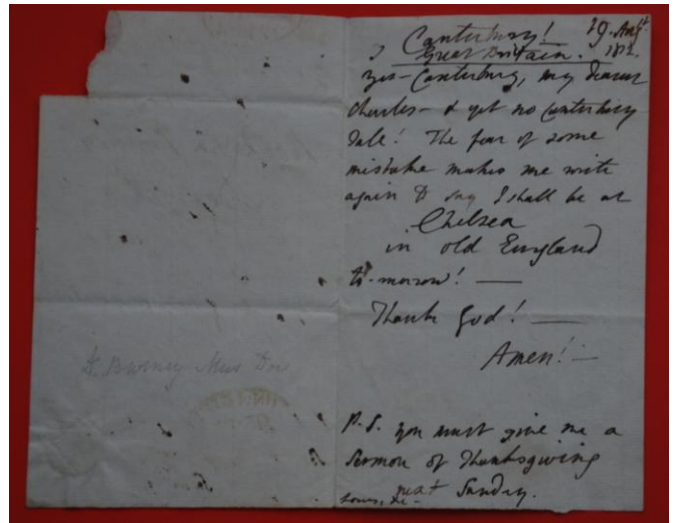 Canterbury! 19. Augst
Great Britain. 1812.
yes - Canterbury, my dearest
Charles - & yet no Canterbury
Tale! The fear of some
mistake makes me write
again to say I shall be at
Chelsea
in old England
to-morrow! —
Thank God! —
Amen! —
P.S. you must give me a
Sermon of Thanksgiving
next Sunday.
Burney Mus Dr